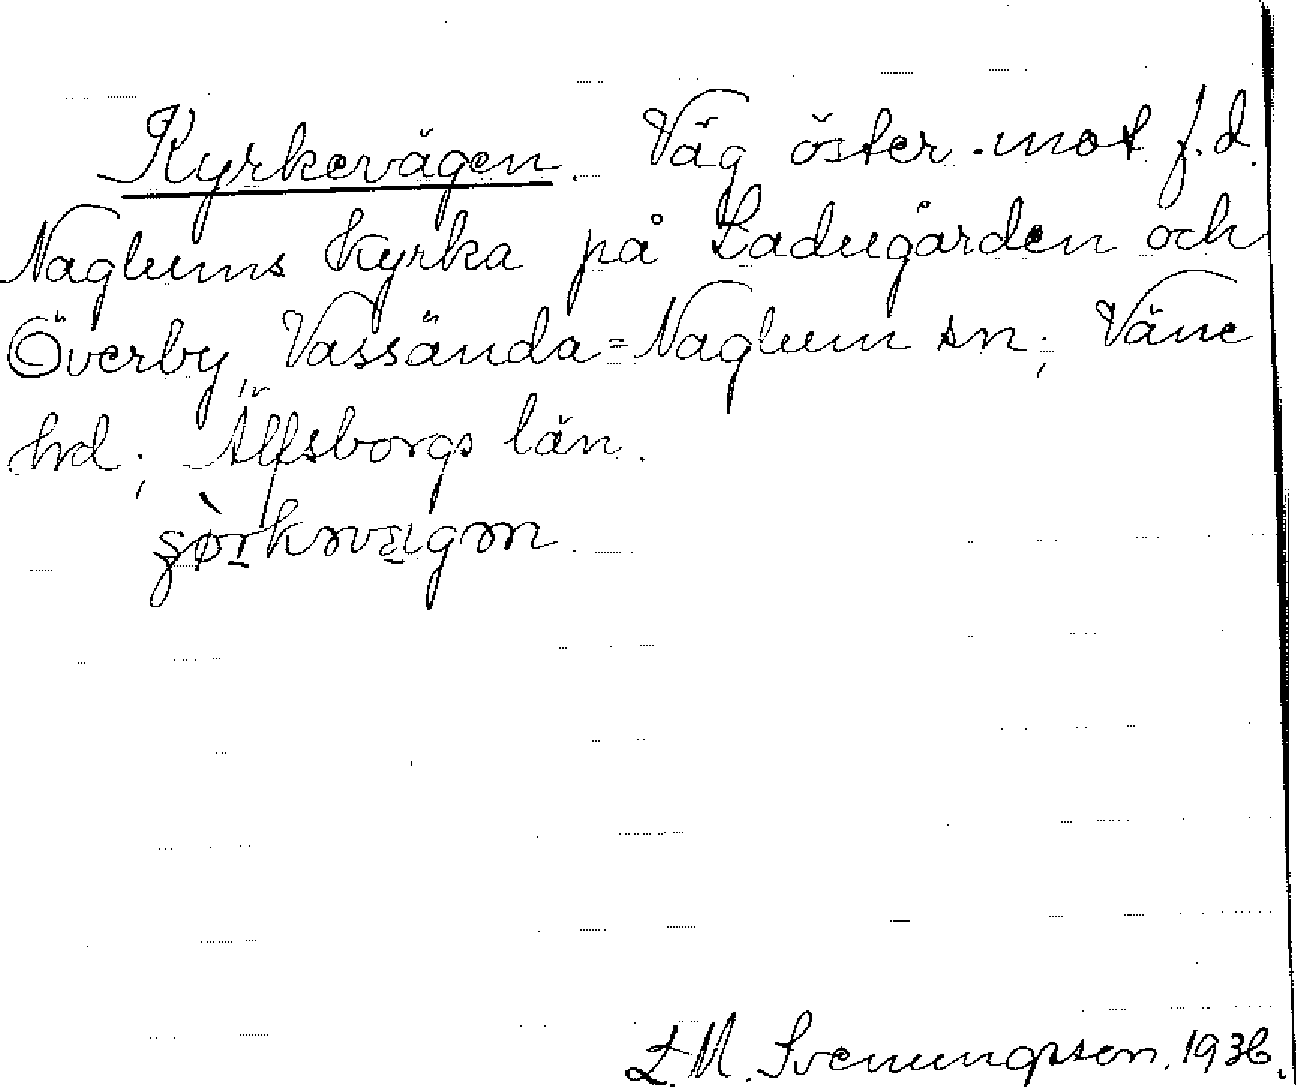 Kyrkevägen. Väg öster mot f.d.
Naglums kyrka på Ladugården och
Överby, Vassända=Naglum sn; Väne
hd; Älfsborgs län.
L.M. Svenungsson. 1936.